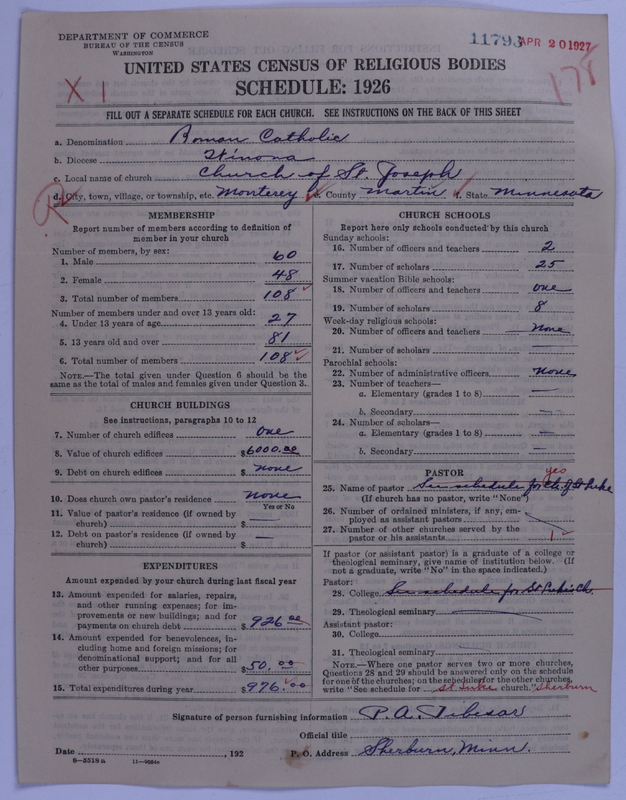 DEPARTMENT OF COMMERCE
BUREAU OF THE CENSUS
WASHINGTON
11793 APR 20 1927
UNITED STATES CENSUS OF RELIGIOUS BODIES
SCHEDULE: 1926
X 1
178
FILL OUT A SEPARATE SCHEDULE FOR EACH CHURCH. SEE INSTRUCTIONS ON THE BACK OF THIS SHEET
a. Denomination Roman Catholic
b. Diocese Winona
c. Local name of church Church of St. Joseph
d. City, town, village, or township, etc. Monterey e. County Martin f. State Minnesota
R
MEMBERSHIP
Report number of members according to definition of
member in your church
Number of members, by sex:
1. Male 60
2. Female 48
3. Total number of members 108
Number of members under and over 13 years old:
4. Under 13 years of age 27
5. 13 years old and over 81
6. Total number of members 108
NOTE.—The total given under Question 6 should be the
same as the total of males and females given under Question 3.
CHURCH BUILDINGS
See instructions, paragraphs 10 to 12
7. Number of church edifices one
8. Value of church edifices $6000.00
9. Debt on church edifices $ none
10. Does church own pastor's residence none
Yes or No
11. Value of pastor's residence (if owned by
church) $ —
12. Debt on pastor's residence (if owned by
church) $ —
EXPENDITURES
Amount expended by your church during last fiscal year
13. Amount expended for salaries, repairs,
and other running expenses; for im-
provements or new buildings; and for
payments on church debt $926.00
14. Amount expended for benevolences, in-
cluding home and foreign missions; for
denominational support; and for all
other purposes $50.00
15. Total expenditures during year $976.00
CHURCH SCHOOLS
Report here only schools conducted by this church
Sunday schools:
16. Number of officers and teachers 2
17. Number of scholars 25
Summer vacation Bible schools:
18. Number of officers and teachers one
19. Number of scholars 8
Week-day religious schools:
20. Number of officers and teachers none
21. Number of scholars —
Parochial schools:
22. Number of administrative officers none
23. Number of teachers—
a. Elementary (grades 1 to 8) —
b. Secondary —
24. Number of scholars—
a. Elementary (grades 1 to 8) —
b. Secondary —
PASTOR
yes
25. Name of pastor See schedule for ch of St Luke
(If church has no pastor, write "None")
26. Number of ordained ministers, if any, em-
ployed as assistant pastors
27. Number of other churches served by the
pastor or his assistants 1
If pastor (or assistant pastor) is a graduate of a college or
theological seminary, give name of institution below. (If
not a graduate, write "No" in the space indicated.)
Pastor:
28. College See schedule for St Luke's Ch.
29. Theological seminary —
Assistant pastor:
30. College
31. Theological seminary —
NOTE.—Where one pastor serves two or more churches,
Questions 28 and 29 should be answered only on the schedule
for one of the churches; on the schedules for the other churches,
write "See schedule for St Luke church." Sherburn
Signature of person furnishing information P. A. Tibesar
Official title
Date , 192 P. O. Address Sherburn, Minn.
8—5518a 11—9084a